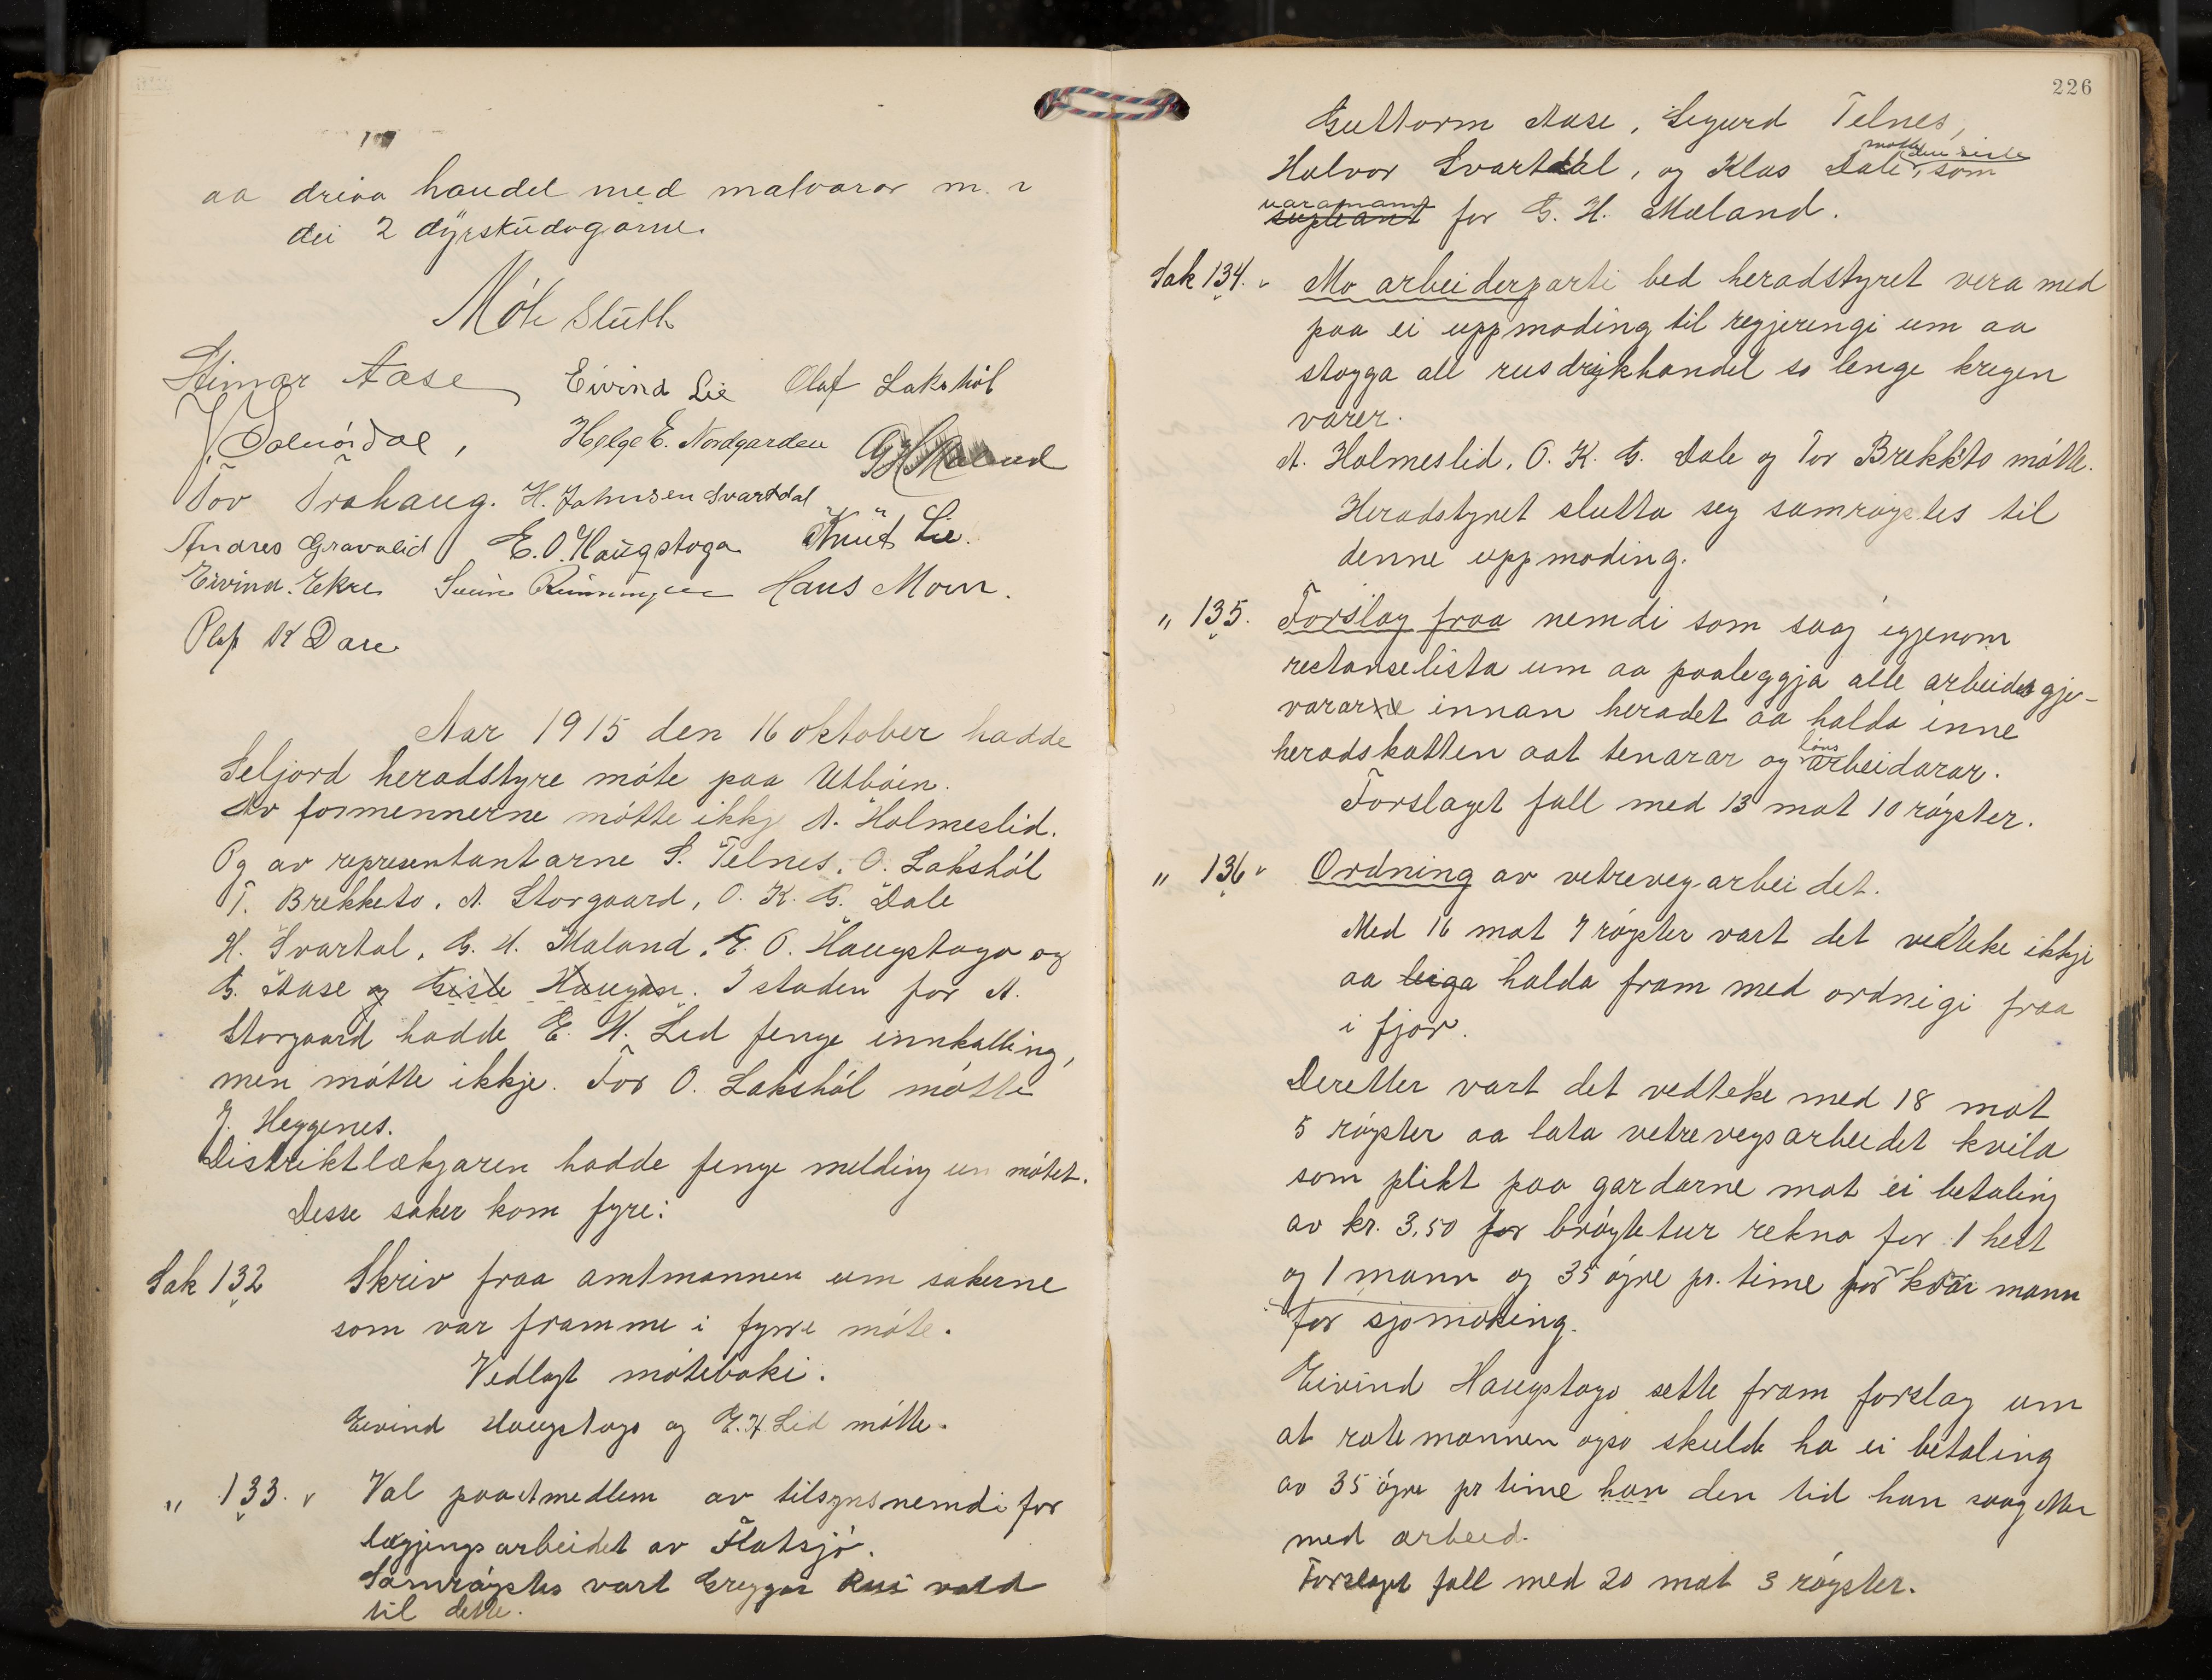 aa driva handel med matvaror m. 
dei 2 dyrskudagarne.
Móte slutt
Steinar Aase Eivind Lie Olaf Lakshól
Helge E. Nordgarden GHMæland
Tov Trahaug. H. Johnsen Svartdal
Andres Gravalid E. O. Haugstoga Knut Lie.
Eivind. Ekre Svein Rinningen Hans Moen.
Olaf K Dale
Aar 1915 den 16 oktober hadde
Seljord heradstyre móte paa Utbóen.
Av formennerne mótte ikkj A. Holmeslid.
Og av representantarne S. Telnes, O. Lakshól
T. Brekketo, A. Storgaard, O. K. G. Dale
H. Svartal, G. H. Mæland, E. O. Haugstoga og
G. Aase og Gisle Haugase. I staden for A.
Storgaard hadde E. H. Lid fenge innkalling,
men mótte ikkje. For O. Lakshól mótte
J. Heggenes.
Distriktlækjaren hadde fenge melding um mótet.
Desse saker kom fyre:
Sak 132 Skriv fraa amtmannen um sakerne
som var framme i fyrre móte.
Vedlagt móteboki.
Eivind Haugstoga og E. H. Lid mótte.
" 133. Val paa medlem av tilsynsnemdi for
lægjingsarbeidet av Flatsjó.
Samróystes vart Greggar Rui vald
til dette.
226
Guttorm Aase, Sigurd Telnes,
motte den siste
Halvor Svartdal, og Klas Dale, som
varamann
supleant for G. H. Mæland.
Sak 134. Mo arbeiderparti bed heradstyret vera med
paa ei uppmoding til regjeringi um aa
stogga all rusdrykhandel so lenge krigen
varer.
A. Holmeslid, O. K. G. Dale og Tor Brekkto mótte.
Heradstyret slutta seg samróystes til
denne uppmoding.
" 135. Forslag fraa nemdi som saag igjenom
restanselista um aa paaleggja alle arbeidsgje-
vararne innan heradet aa halda inne
lóns
heradskatten aat tenarar og arbeidarar.
Forslaget fall med 13 mot 10 róyster.
" 136 Ordning av vetrevegarbeidet.
Med 16 mot 7 róyster vart det vedteke ikkje
aa leiga halda fram med ordnigi fraa
i fjor.
Deretter vart det vedteke med 18 mot
5 róyster aa lata vetrevegsarbeidet kvila
som plikt paa gardarne mot ei betaling
av kr. 3,50 for bróytetur rekna for 1 hest
og 1 mann og 35 óyre pr. time for kvar mann
for sjomoking.
Eivind Haugstoga sette fram forslag um
at rotemannen ogso skulde ha ei betaling
av 35 óyre pr time han den tid han saag etter
med arbeid.
Forslaget fall med 20 mot 3 róyster.